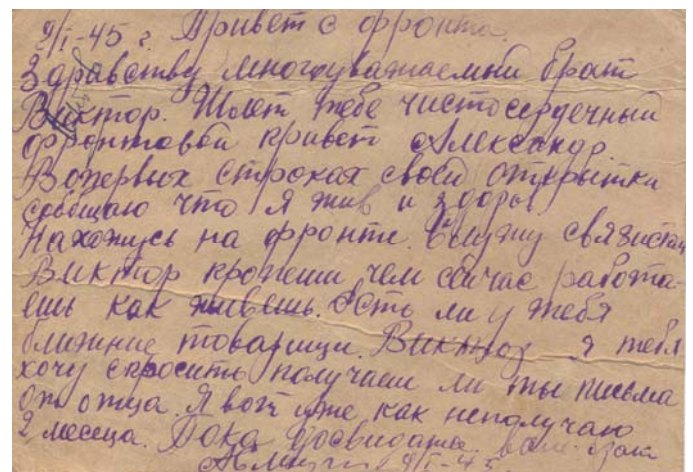 9/I-45 г. Привет с фронта.
Здравству многоуважаемый брат
Виктор. Шлет тебе чистосердечный
фронтовой привет Александр
Вопервых строках своей открытки
сообщаю что я жив и здоры
Нахожусь на фронте. Служу связистам
Виктор кропеши чем сейчас работа-
ешь как живешь. Есть ли у тебя
ближние товарищи. Виктор я тебя
хочу спросить получаеш ли ты письма
от отца. Я вот уже как неполучаю
2 месеца. Пока досвидание
9/I-45